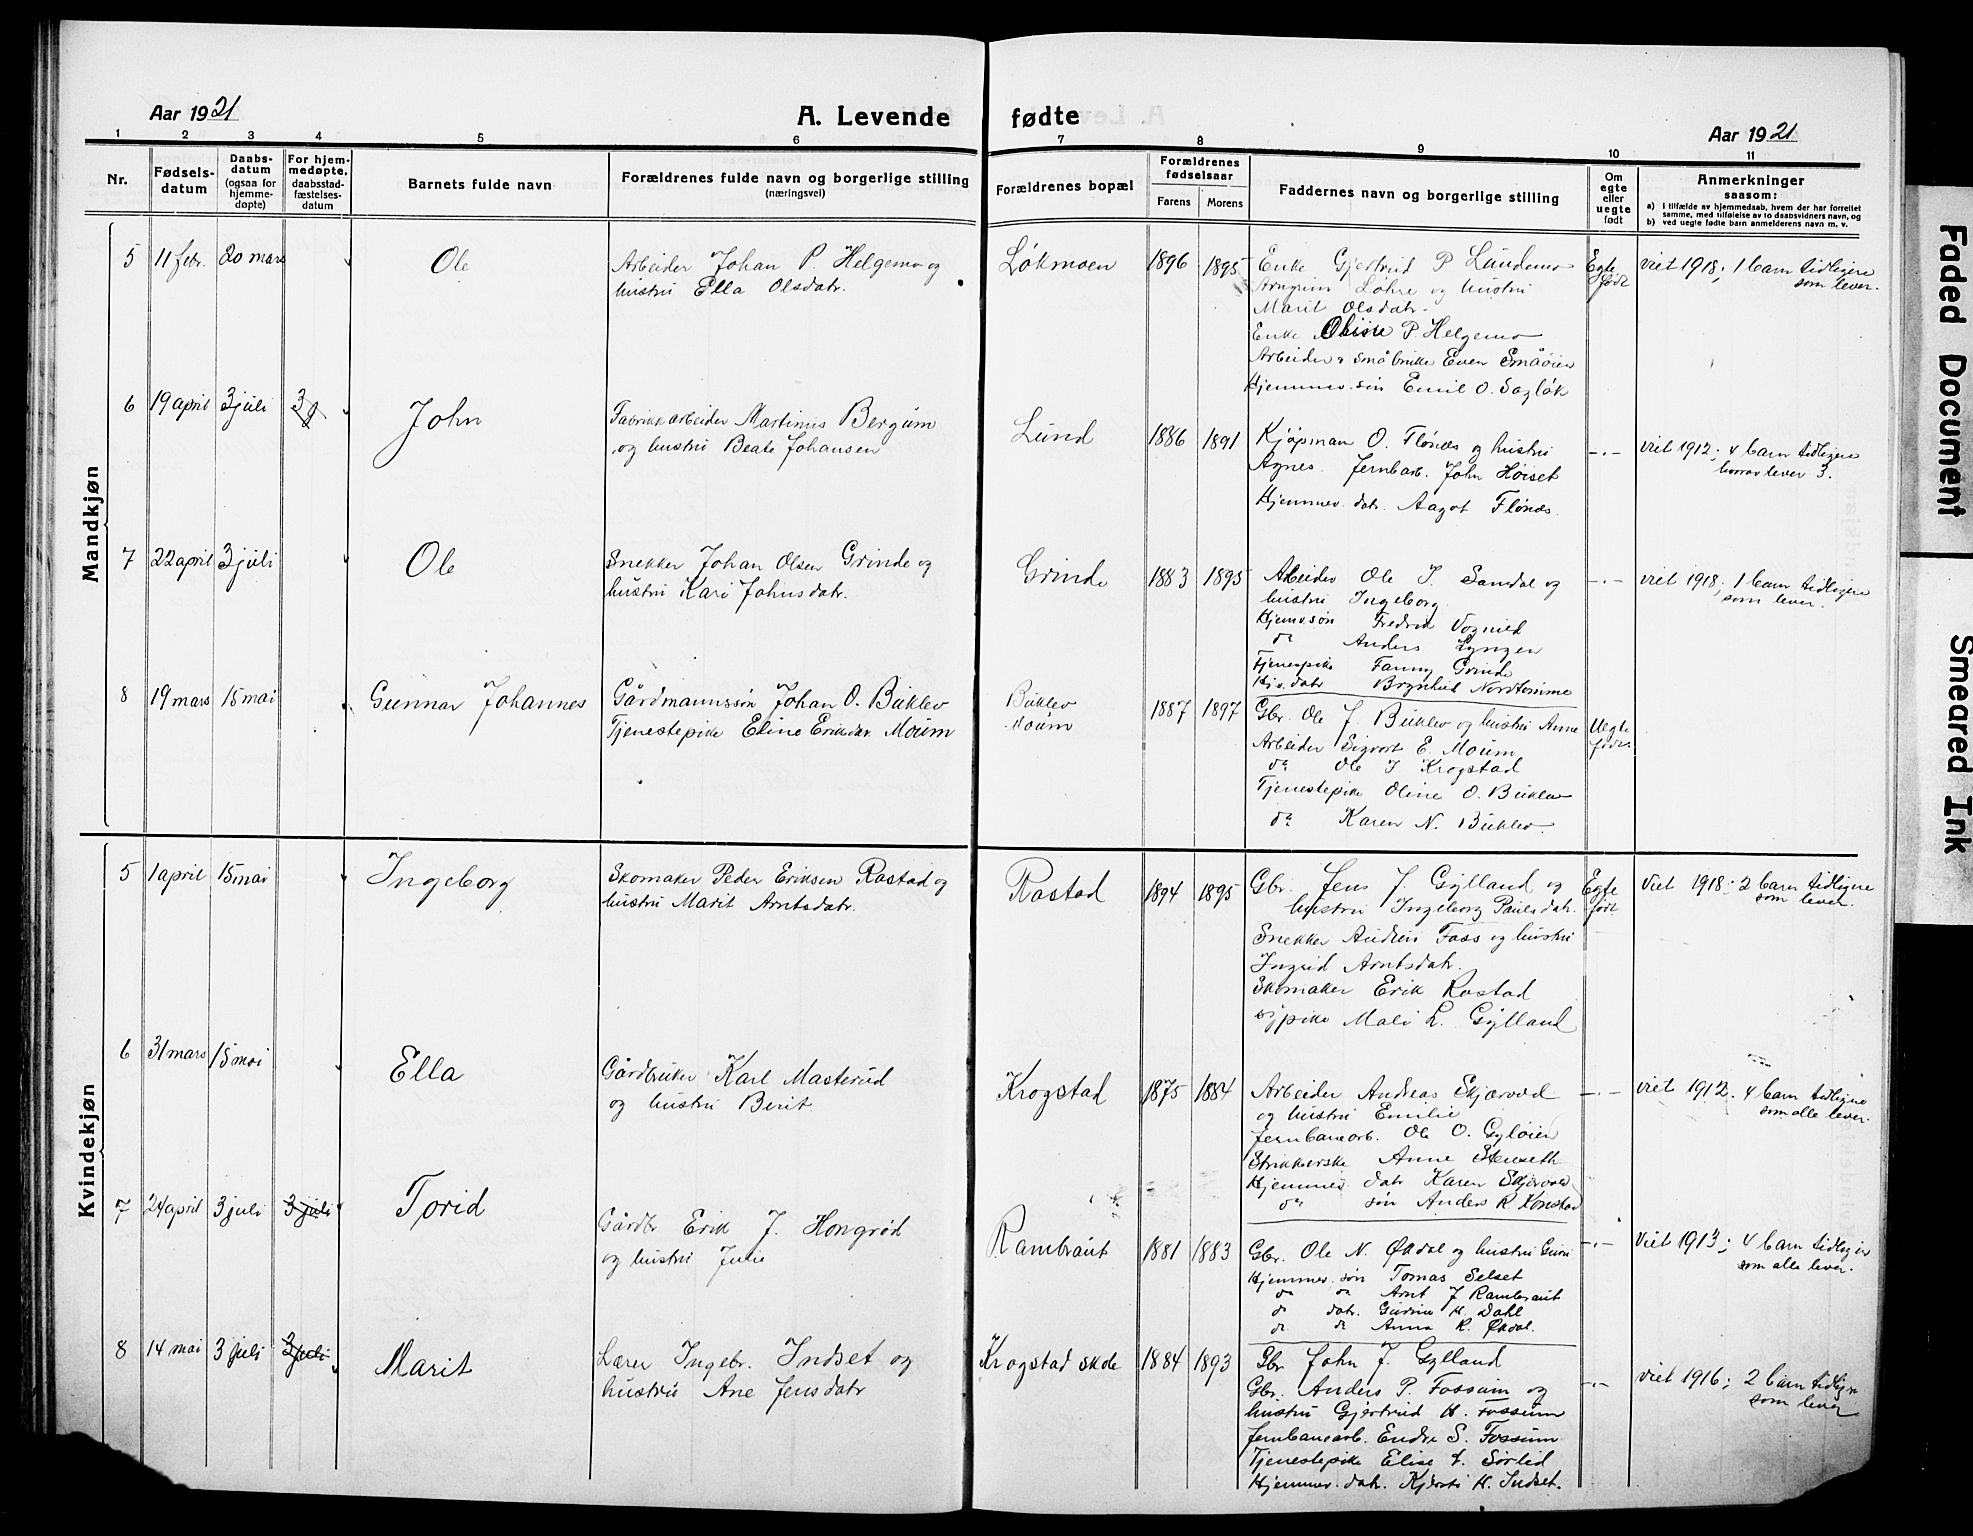 Aar 1921
A. Levende fødte
Aar 1921
1 2 3 4 5 6 7 8 9 10 11
Nr.
Fødselsdatum
Daabsdatum (ogsaa for hjemmedøpte)
For hjemmedøpte, daabsstadfæstelsesdatum
Barnets fulde navn
Forældrenes fulde navn og borgerlige stilling (næringsvei)
Forældrenes bopæl
Forældrenes fødselsaar
Farens
Morens
Faddernes navn og borgerlige stilling
Om egte eller uegte født
Anmerkninger saasom:
a) i tilfælde av hjemmedaab, hvem der har forrettet samme, med tilføielse av to daabsvidners navn, og
b) ved uegte fødte barn anmelderens navn m. v.
Mandkjøn
5 11 febr. 20 mars Ole
Arbeider Johan P. Helgemo og
hustru Ella Olsdatr.
Løkmoen 1896 1895
Enke Gjertrud P Lundemo
Arngrim Løhre og hustru
Marit Olsdatr.
Enke Oline P. Helgemo
Arbeider & småbruker Even Småøien
Hjemmev. søn Emil O. Sagløk
Egte født
viet 1918; 1 barn tidligere
som lever.
6 19 april 3 juli John
Fabrikkarbeider Martinus Bergum
og hustru Beate Johansen
Lund 1886 1891
Kjøpman O. Flønes og hustru
Agnes. Jernbarb. John Høiset
Hjemmev. datr. Aagot Flønes.
-"-
viet 1912; 4 barn tidligere
hvorav lever 3.
7 22 april 3 juli Ole
Snekker Johan Olsen Grinde og
hustru Kari Johnsdatr.
Grinde 1883 1895
Arbeider Ole J. Sandal og
hustru Ingeborg.
Hjemv. søn Fredrik Vognild
do Anders Lyngen
Tjenespike Fanny Grinde
Hjv. datr Brynhild Nordtømme
-"-
viet 1918; 1 barn tidligere
som lever.
8 19 mars 15 mai Gunnar Johannes
Gårdmannssøn Johan O. Buklev
Tjenestepike Eline Eriksdr. Moum
Buklev
Moum
1887 1897
Gbr. Ole J. Buklev og hustru Anne
Arbeider Sigvart E. Moum
do Ole J Krogstad
Tjenestepike Oline O. Buklev
do Karen N. Buklev.
Uegte født.
Kvindekjøn
5 1 april 15 mai Ingeborg
Skomaker Peder Eriksen Rostad og
hustru Marit Arntsdatr.
Rostad 1894 1895
Gbr. Jens J. Gylland og
hustru Ingeborg Paulsdatr.
Snekker Foss og hustru
Ingrid Arntsdatr.
Skomaker Erik Rostad
sypike Mali L. Gylland
Egte født
Viet 1918; 2 barn tidligere
som lever.
6 31 mars 15 mai Ella
Gårdbruker Karl Masterud
og hustru Berit.
Krogstad 1875 1884
Arbeider Andreas Skjærvold
og hustru Emilie
Jernbanearb. Ole O. Gyløien
Strikkerske Anne Stenseth
Hjemmev. datr Karen Skjærvold
do søn Anders R. Konstad
-"-
viet 1912. 4 barn tidligere
som alle lever.
7 24 april 3 juli 3 juli Torid
Gårdbr Erik J. Hongrød
og hustru Julie
Rambraut 1881 1883
Gbr. Ole N. Økdal og hustru Guri
Hjemmev. søn Tomas Selset
do do Arnt J Rambraut
do datr. Gudrun H. Dahl
do do Anna R. Økdal.
-"-
Viet 1913; 4 barn tidliger
som alle lever.
8 14 mai 3 juli 3 juli Marit
Lærer Ingebr. Indset og
hustru Ane Jensdatr
Krogstad skole 1884 1893
Gbr. John J. Gylland
Gbr. Anders P. Fossum og
hustru Gjertrud H. Fossum
Jernbanearb. Endre S. Fossum
Tjenestepike Elise Sørlid
Hjemmev. datr. Kjersti H. Indset.
-"-
viet 1916; 2 barn tidligre
som lever
Faded Document
Smeared Ink